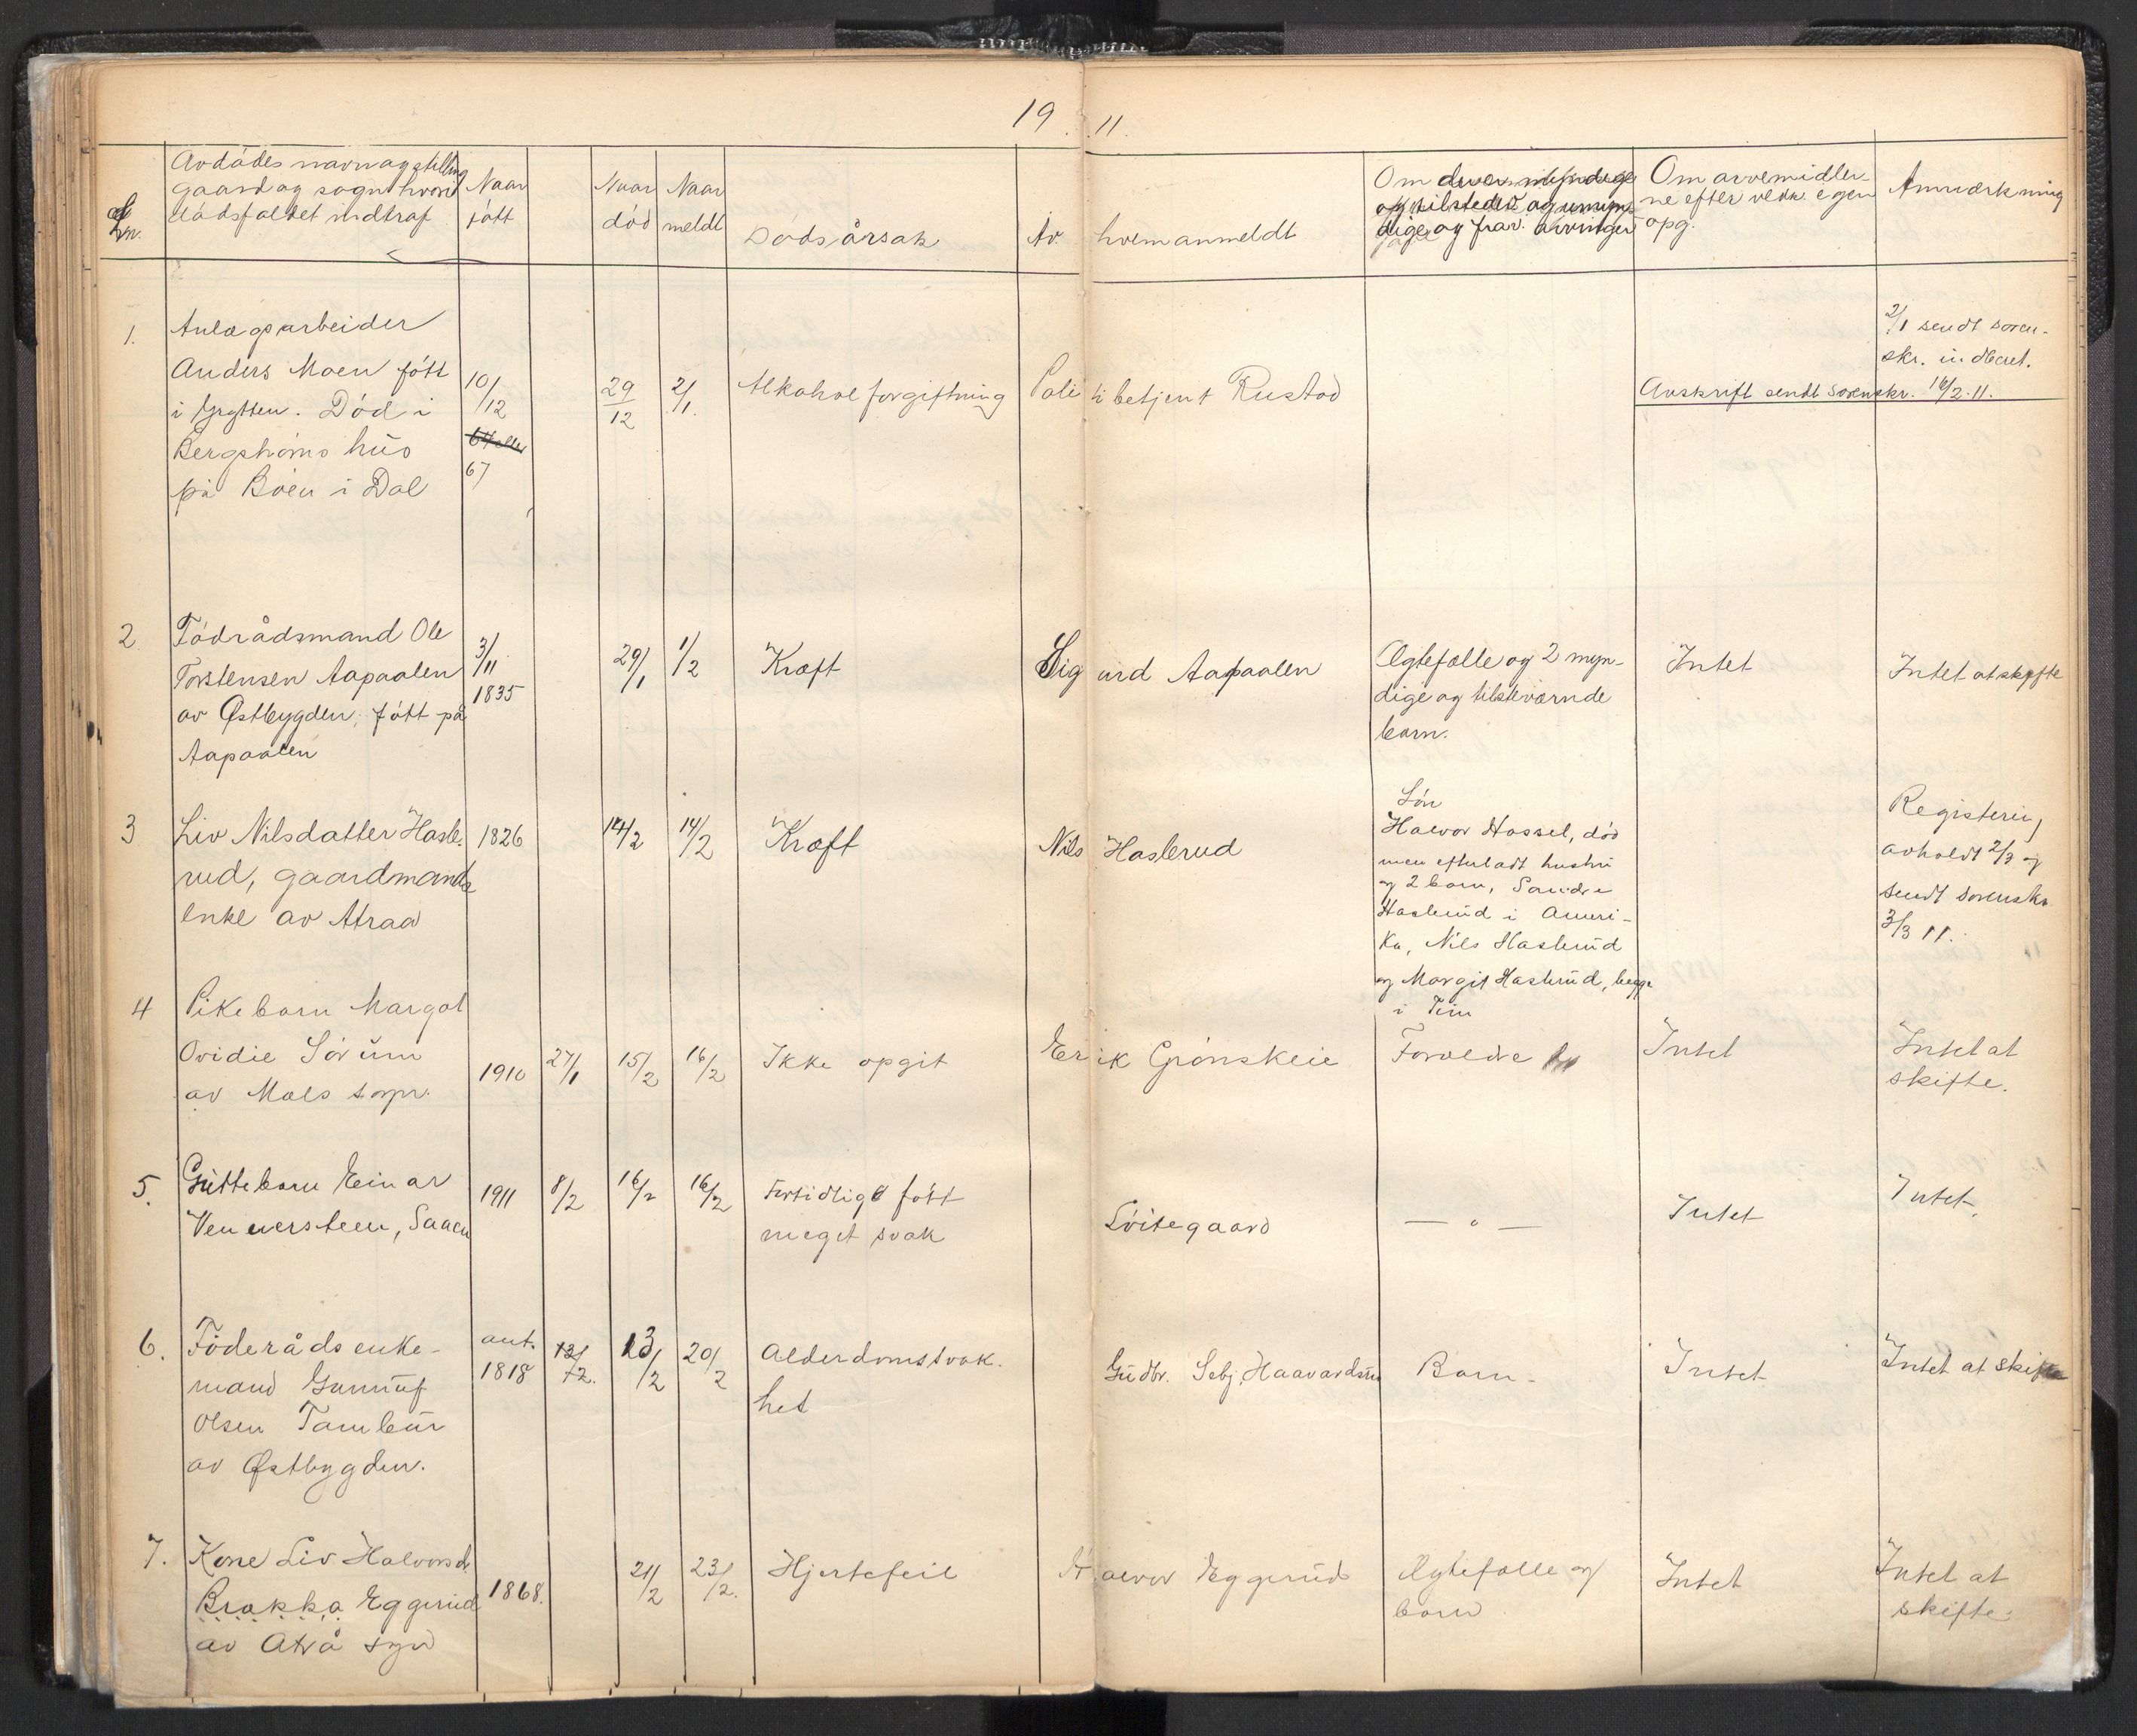 19 11.
Avdödes navn og stilling
gaard og sogn hvori
dödsfaldet indtraf
Naar
fött
Naar
död
Naar
meldt
Dödsårsak
Av hvem anmeldt
Om
Om arvemidler-
ne efter vedk. egen
opg.
Anmerkning
1.
Anlægsarbeider
Anders Moen fött
i Grytten. Död i
Bergströms hus
på Böen i Dal
10/12
67
29/12
2/1.
Alkoholforgiftning
Politibetjent Rustad
2/1 sendt soren-
skr. indberet.
Avskrift sendt sorenskr. 16/2.11.
2
Födrådsmand Ole
Torstensen Aapaalen
av Østbygden, fött på
Aapaalen
3/11
1835
29/1
1/2
Kræft
Sigurd Aapaalen
Ægtefælle og 2 myn-
dige og tilsteværnde
barn.
Intet
Intet at skifte
3
Liv Nilsdatter Hasle-
rud, gaardmands
enke av Atraa
1826
14/2
14/2
Kræft
Nils Haslerud
Sön
Halvor Hassel, död
men efterladt hustru
og 2 barn, Sondre
Haslerud i Ameri-
ka, Nils Haslerud
og Margit Haslerud, begge
i Tinn
Registering
avholdt 2/3 og
sendt sorenskr.
3/3 11.
4
Pikebarn Margot
Ovidie Sörum
av Mæls sogn.
1910
27/1
15/2
16/2
Ikke opgit
Erik Grönskeie
Forældre
Intet
Intet at
skifte.
5.
Guttebarn Einar
Vennersteen, Saaen
1911
8/2
16/2
16/2
Fortidlig fött
meget svak
Svitegaard
— " —
Intet
Intet.
6.
Föderåds enke-
mand Gunnuf
Olsen Tambur
av Østbygden.
ant.
1818
13/2
20/2
Alderdomssvak.
het
Gudbr. Sebj. Haavardsrud
Barn.
Intet
Intet at skifte
7.
Kone Liv Halvorsd.
Brokka Eggerud
av Atrå sogn
1868.
21/2
23/2.
Hjertefeil
Halvor Eggerud
Ægtefælle og
barn
Intet
Intet at
skifte.